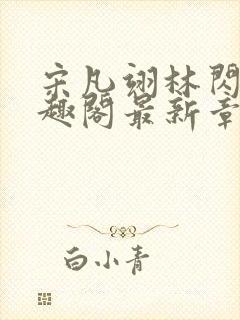 宋凡翊林閃
趣閣最新章
白小青